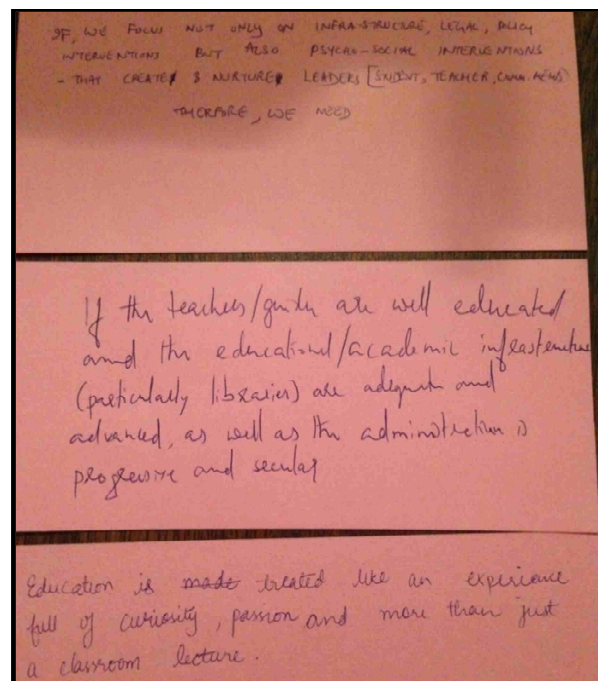 IF, WE FOCUS NOT ONLY ON INFRA-STRUCTURE, LEGAL, POLICY
INTERVENTIONS BUT ALSO PSYCHO-SOCIAL INTERVENTIONS
- THAT CREATE & NURTURE LEADERS [STUDENT, TEACHER, COMM.
THERFORE, WE NEED
If the teachers/guides are well educated
and the educational/academic infrastructure
(particularly libraries) are adequate and
advanced, as well as the administration is
progressive and secular
Education is made treated like an experience
full of curiosity, passion and more than just
a classroom lecture.